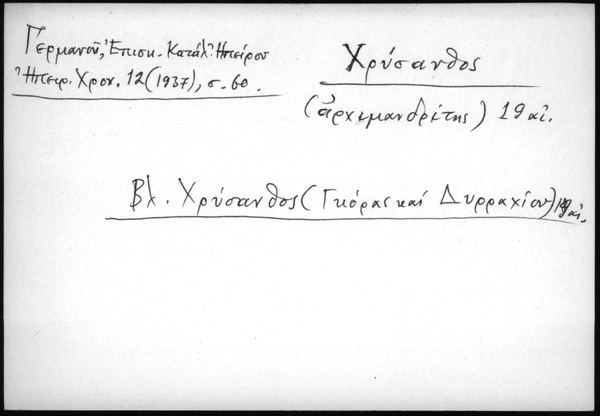 Γερμανοῦ, Ἐπισκ. Κατάλ. Ἠπείρου
Ἠπειρ. Χρον. 12 (1937), σ. 60.
Χρύσανθος
(ἀρχιμανδρίτης) 19 αἰ.
Βλ. Χρύσανθος (Γκόρας καί Δυρραχίου) 19 αἰ.